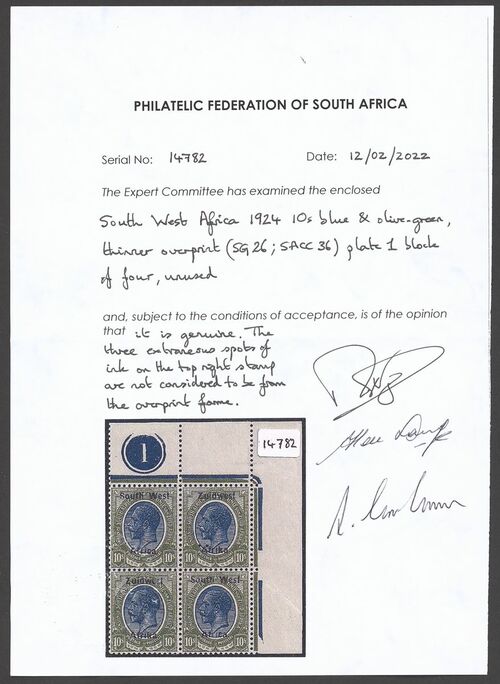 PHILATELIC FEDERATION OF SOUTH AFRICA
Serial No: 14782 Date: 12/02/2022
The Expert Committee has examined the enclosed
South West Africa 1924 10s blue & olive-green,
thinner overprint (SG 26; SACC 36) plate 1 block
of four, unused
and, subject to the conditions of acceptance, is of the opinion
that it is genuine. The
three extraneous spots of
ink on the top right stamp
are not considered to be from
the overprint forme.
1
14782
South West Zuidwest
Africa Afrika
10s 10s 10s 10s
Zuidwest South West
Afrika Africa
10s 10s 10s 10s